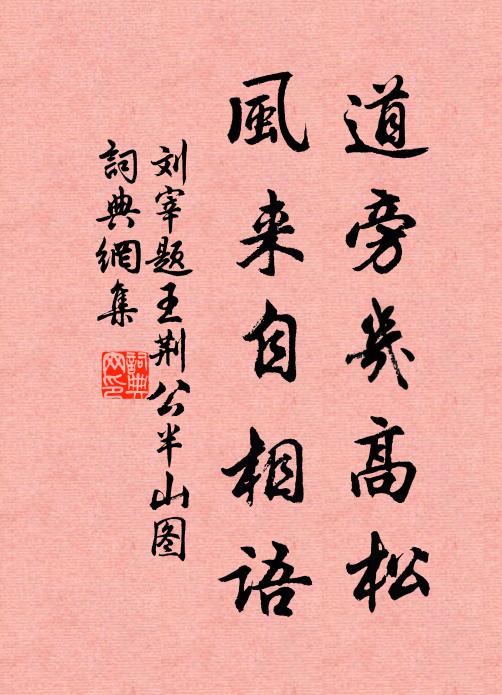 道旁幾高松
風来自相語
刘宰题王荆公半山图
詞典網集
詞典网印